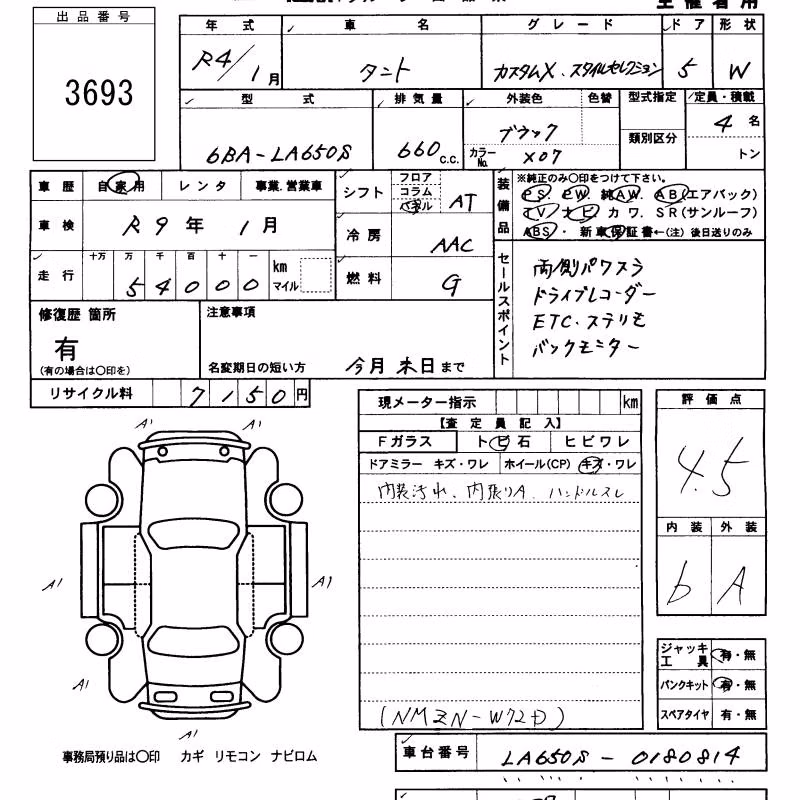 主催者用
出品番号
3693
年式 車名 グレード ドア 形状
R4/1月 タント カスタムX.スタイルセレクション 5 W
型式 排気量 外装色 色替 型式指定 定員・積載
6BA-LA650S 660c.c. ブラック 類別区分 4名
カラーNo. X07 トン
車歴 自家用 レンタ 事業.営業車
車検 R9年 1月
走行 十万 万 千 百 十 一
54000 km マイル
シフト フロア コラム パネル AT
冷房 AAC
燃料 G
装備品 ※純正のみ○印をつけて下さい。
PS. PW. 純AW. AB(エアバック)
TV ナビ カワ. SR(サンルーフ)
ABS・ 新車保証書←(注) 後日送りのみ
セールスポイント
両側パワスラ
ドライブレコーダー
ETC.ステリモ
バックモニター
修復歴 箇所
有
(有の場合は○印を)
注意事項
名変期日の短い方 今月末日まで
リサイクル料 7150円
現メーター指示 km
【査定員記入】
Fガラス トビ石 ヒビワレ
ドアミラー キズ・ワレ ホイール(CP) キズ・ワレ
内装汚れ、内張りA. ハンドルスレ
(NMZN-W72D)
評価点
4.5
内装 外装
b A
ジャッキ工具 有・無
パンクキット 有・無
スペアタイヤ 有・無
A1 A1
A1 A1
A1
A1
事務局預り品は○印 カギ リモコン ナビロム
車台番号 LA650S-0180814